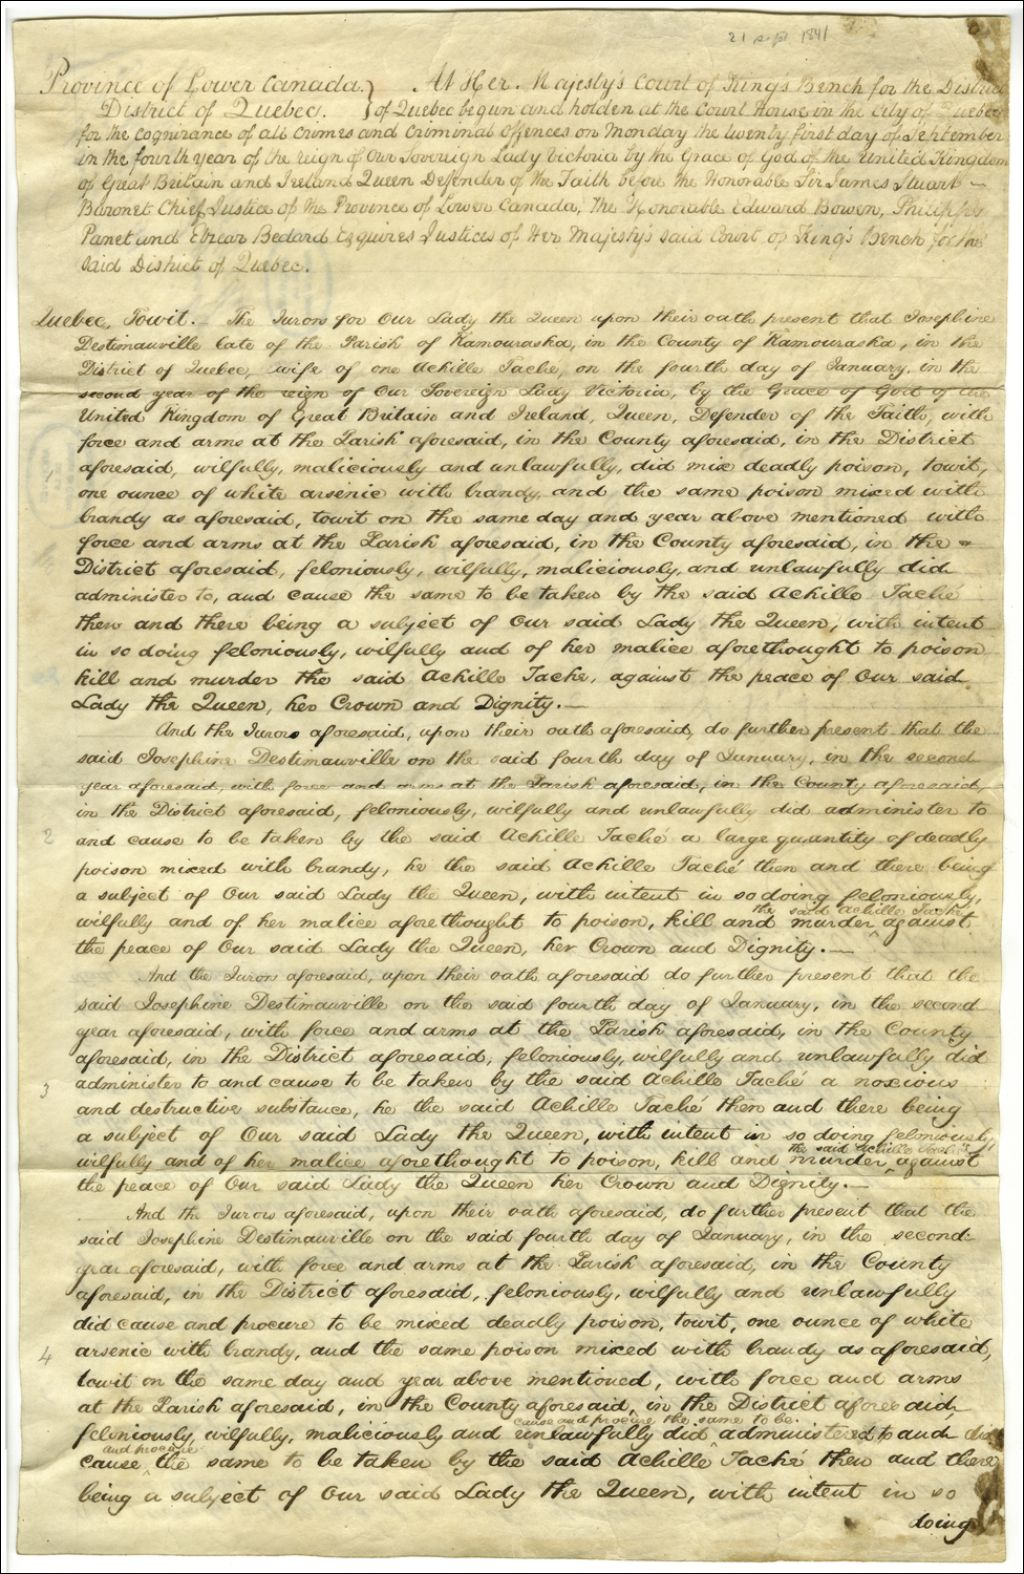 21 sept 1841
Province of Lower Canada. } At Her Majesty's Court of King's Bench for the District
District of Quebec. } of Quebec begun and holden at the Court House in the City of Quebec
for the cognizance of all crimes and criminal offences on Monday the twenty first day of September
in the fourth year of the reign of Our Sovereign Lady Victoria by the Grace of God of the United Kingdom
of Great Britain and Ireland Queen Defender of the Faith before the Honorable Sir James Stuart
Baronet Chief Justice of the Province of Lower Canada, The Honorable Edward Bowen, Philippe
Panet and Elzear Bedard Esquires Justices of Her Majesty's said Court of King's Bench for the
said District of Quebec.
Quebec, Towit. The Jurors for Our Lady the Queen upon their oath present that Josephine
Destimauville late of the Parish of Kamouraska, in the County of Kamouraska, in the
District of Quebec, wife of one Achille Taché, on the fourth day of January, in the
second year of the reign of Our Sovereign Lady Victoria, by the Grace of God of the
United Kingdom of Great Britain and Ireland, Queen, Defender of the Faith, with
force and arms at the Parish aforesaid, in the County aforesaid, in the District
1 aforesaid, wilfully, maliciously and unlawfully, did mix deadly poison, towit,
one ounce of white arsenic with brandy, and the same poison mixed with
brandy as aforesaid, towit on the same day and year above mentioned with
force and arms at the Parish aforesaid, in the County aforesaid, in the
District aforesaid, feloniously, wilfully, maliciously, and unlawfully did
administer to, and cause the same to be taken by the said Achille Taché
then and there being a subject of Our said Lady the Queen, with intent
in so doing feloniously, wilfully and of her malice aforethought to poison
kill and murder the said Achille Taché, against the peace of Our said
Lady the Queen, her Crown and Dignity.
And the Jurors aforesaid, upon their oath aforesaid, do further present that the
said Josephine Destimauville on the said fourth day of January, in the second
year aforesaid, with force and arms at the Parish aforesaid, in the County aforesaid,
in the District aforesaid, feloniously, wilfully and unlawfully did administer to
2 and cause to be taken by the said Achille Taché a large quantity of deadly
poison mixed with brandy, he the said Achille Taché then and there being
a subject of Our said Lady the Queen, with intent in so doing feloniously,
the said Achille Taché
wilfully and of her malice aforethought to poison, kill and murder ^ against
the peace of Our said Lady the Queen, her Crown and Dignity.
And the Jurors aforesaid, upon their oath aforesaid do further present that the
said Josephine Destimauville on the said fourth day of January, in the second
year aforesaid, with force and arms at the Parish aforesaid, in the County
aforesaid, in the District aforesaid, feloniously, wilfully and unlawfully did
3 administer to and cause to be taken by the said Achille Taché a noxious
and destructive substance, he the said Achille Taché then and there being
a subject of Our said Lady the Queen, with intent in so doing feloniously,
the said Achille Taché
wilfully and of her malice aforethought to poison, kill and murder ^ against
the peace of Our said Lady the Queen her Crown and Dignity.
And the Jurors aforesaid, upon their oath aforesaid, do further present that the
said Josephine Destimauville on the said fourth day of January, in the second
year aforesaid, with force and arms at the Parish aforesaid, in the County
aforesaid, in the District aforesaid, feloniously, wilfully and unlawfully
did cause and procure to be mixed deadly poison, towit, one ounce of white
4 arsenic with brandy, and the same poison mixed with brandy as aforesaid,
towit on the same day and year above mentioned, with force and arms
at the Parish aforesaid, in the County aforesaid, in the District aforesaid,
cause and procure the same to be
feloniously, wilfully, maliciously and unlawfully did ^ administered to and did
and procure
cause ^ the same to be taken by the said Achille Taché then and there
being a subject of Our said Lady the Queen, with intent in so
doing